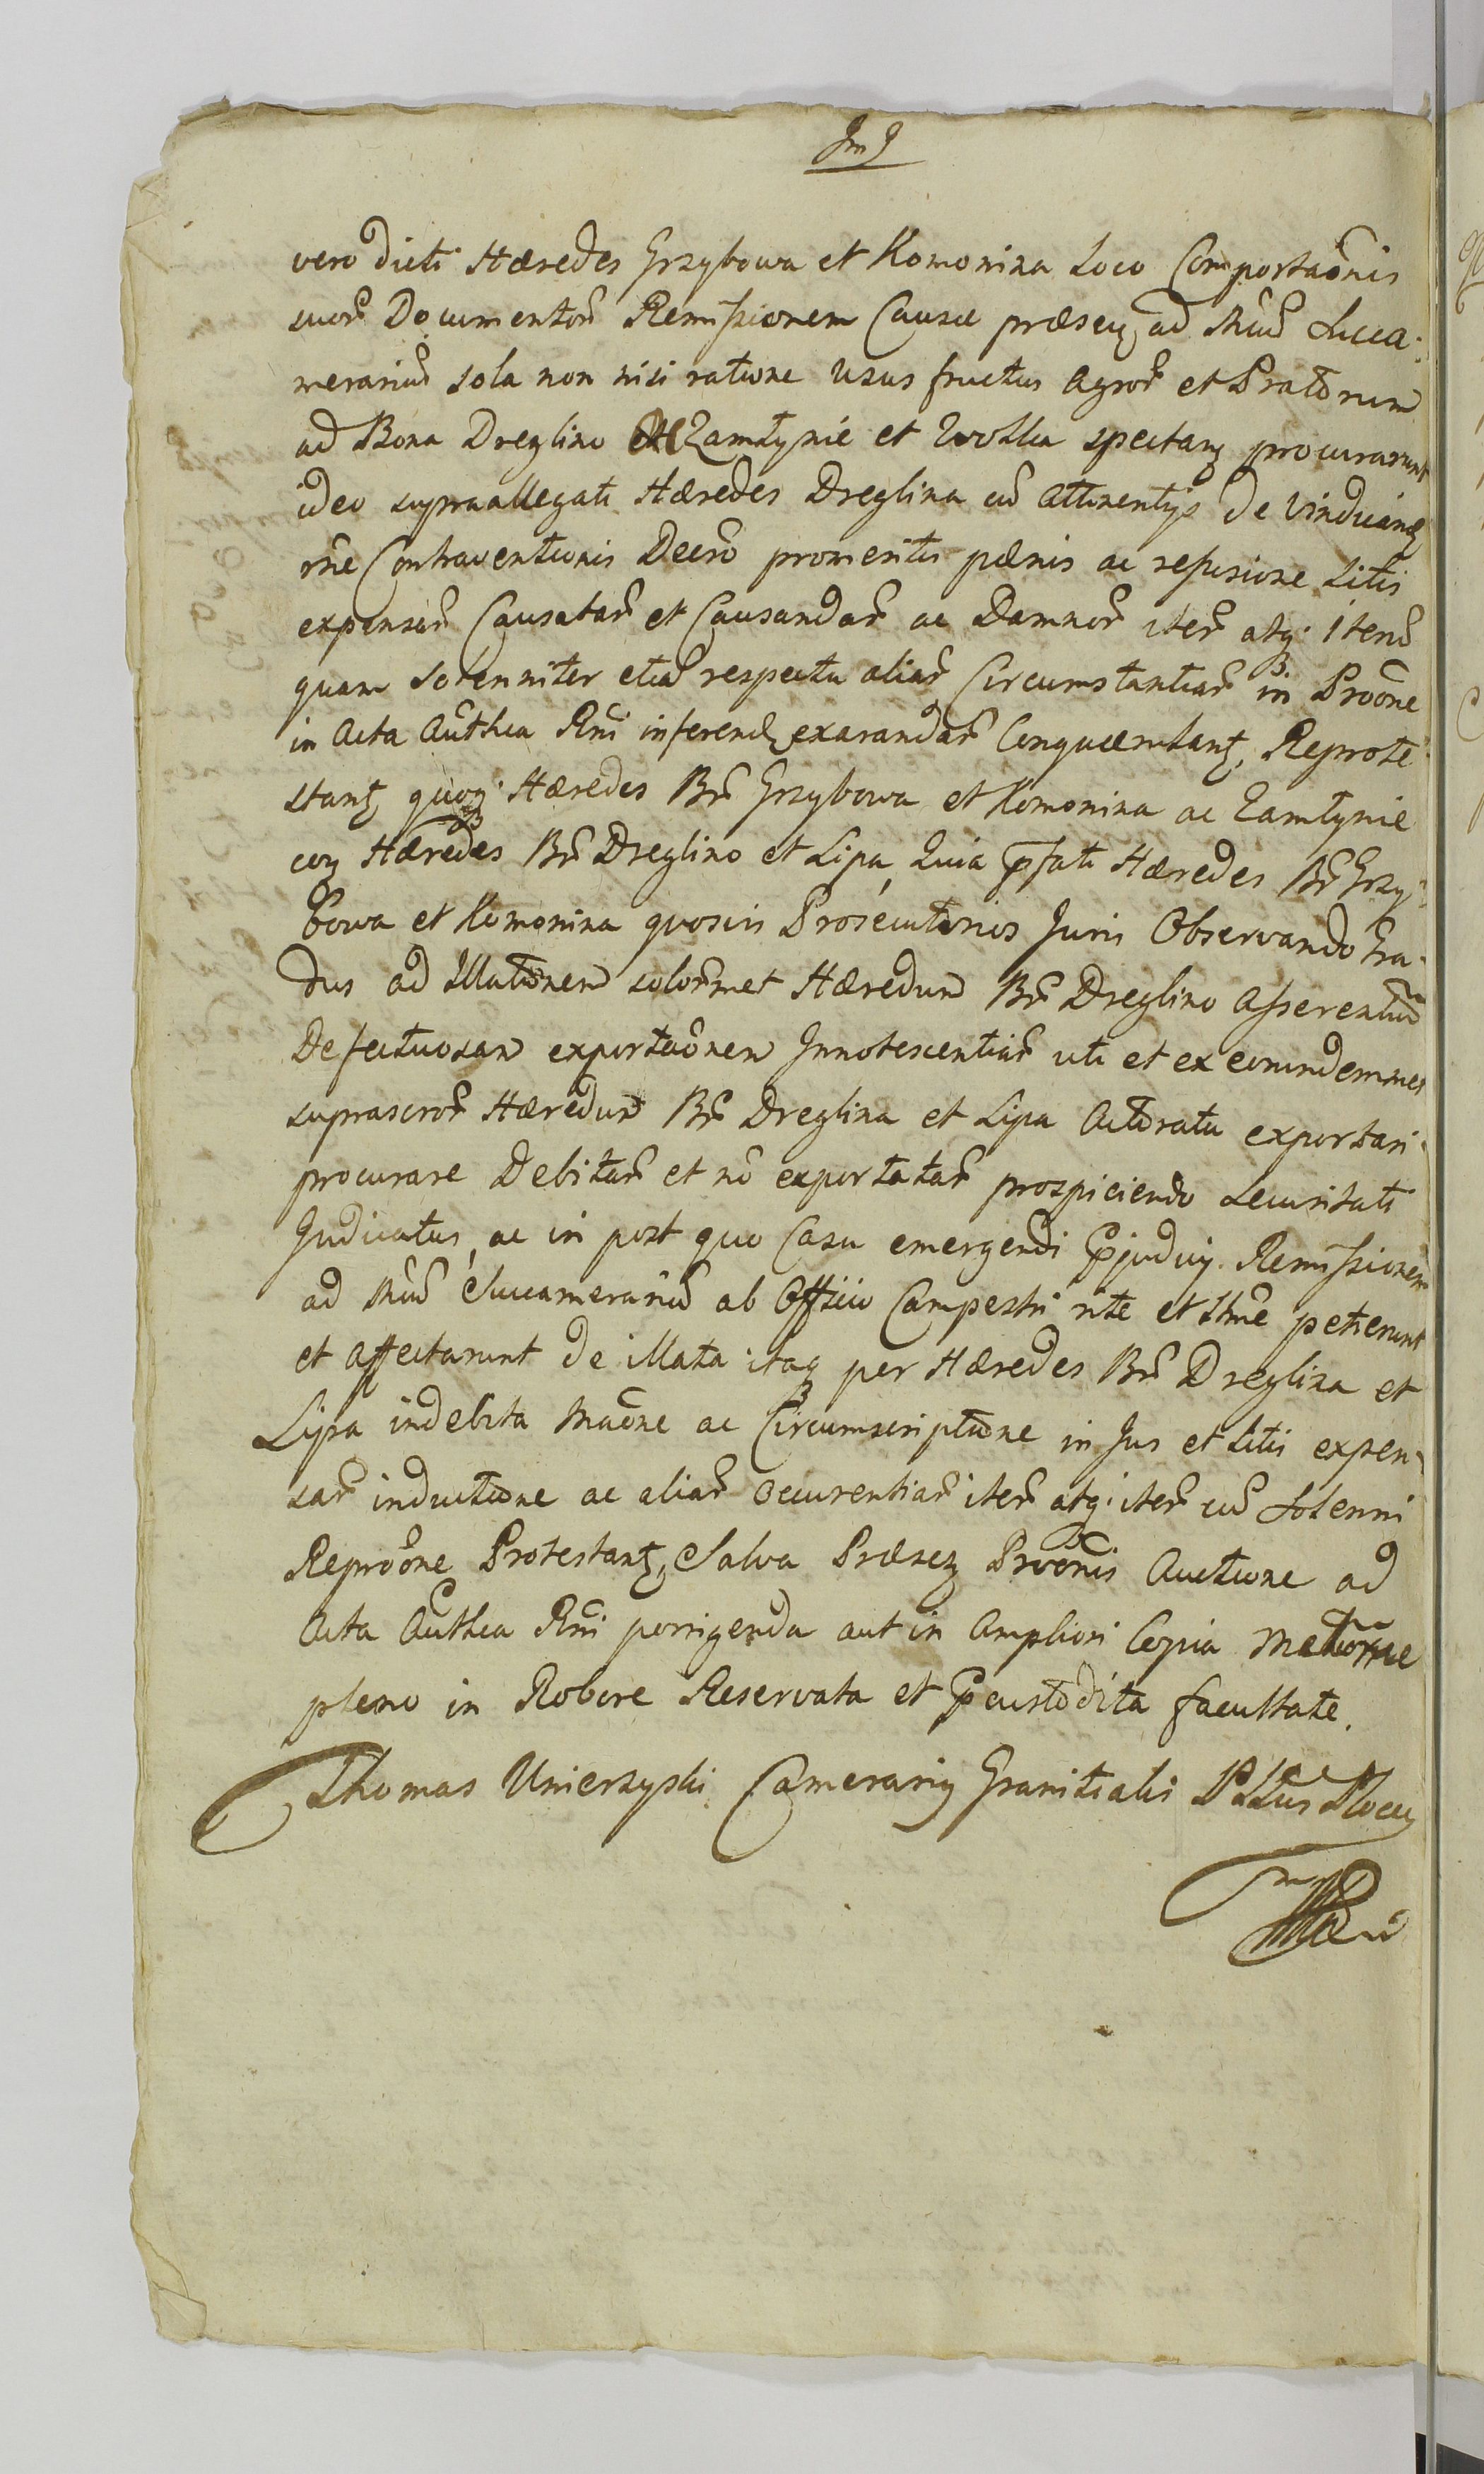 vero dicti Hæredes Grzybowa et Komonina Loco Comportaõnis
suor̃ Documentor̃ Remissionem Causæ præsen̄ ad Mũm Succa-
merariũ sola non nisi ratione Usus fructus Agror̃ et Pratorum
ad Bona Dreglino et Zamłynie et Wolka spectan̄ procurarunt
ideo supraallegati Hæredes Dreglina cũ Attinentijs de Vindicand̄
rñe Contraventionis Decro promeritis pænis ac refusione Litis
expensar̃ Causatar̃ et Causandar̃ ac Damnor̃ iter̃ atq; Iterũ
quam Solenniter etiã respectu aliar̃ Circumstantiar̃ in Proõne
in Acta Authca Rñi inferend̄ exarandar̃ Conquærulant̄, Reprote-
stant̄ quoq; Hæredes Br̃ Grzybowa et Komonina ac Zamłynie
coñ Hæredes Br̃ Dreglino et Lipa, Quia p̄fati Hæredes Br̃ Grzy-
bowa et Komonina quosvis Prosecutorios Juris Observando Gra-
dus ad Illationem solor̃met Hæredum Br̃ Dreglino Asserentiũ
Defectuosam exportaõnem Innotescentiar̃ uti et ex eorundemmet
suprascror̃ Hæredum Br̃ Dreglina et Lipa Actoratu exportari
procurare Debitar̃ et nõ exportatar̃ prospiciendo Securitati
Judicatus, ac in post quo Casu emergendi p̄judicij Remissionem
ad Mũm Succamerariũ ab Officio Campestri rite et Ittme petierunt
et Affectarunt de illata itaq; per Hæredes Br̃ Dreglina et
Lipa indebita Maõne ac Circumscriptione in Jus et Litis expen-
sar̃ inductione ac aliar̃ Occurentiar̃ iter̃ atq; iter̃ cũ Solenni
Reproõne Protestant̄, Salva Præsen̄ Proõnis Auctione ad
Acta Authca Rñi porrigenda aut in Ampliori Copia
pleno in Robore Reservata et p̄custodita facultate.
Thomas Unierzyski Camerariq Granitialis Pltus Plocen̄
mp